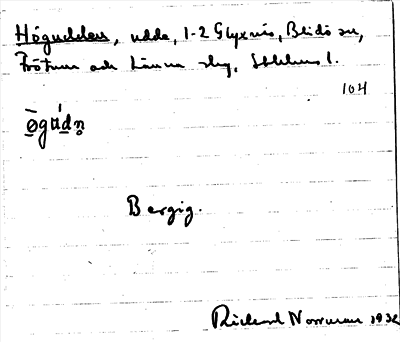 Högudden, udde, 1-2 Glyxnäs, Blidö sn,
Frötuna och Länna slg, Sthlms l.
104
ø̄gʉ́dṇ
Bergig.
Rickard Norrman 1932